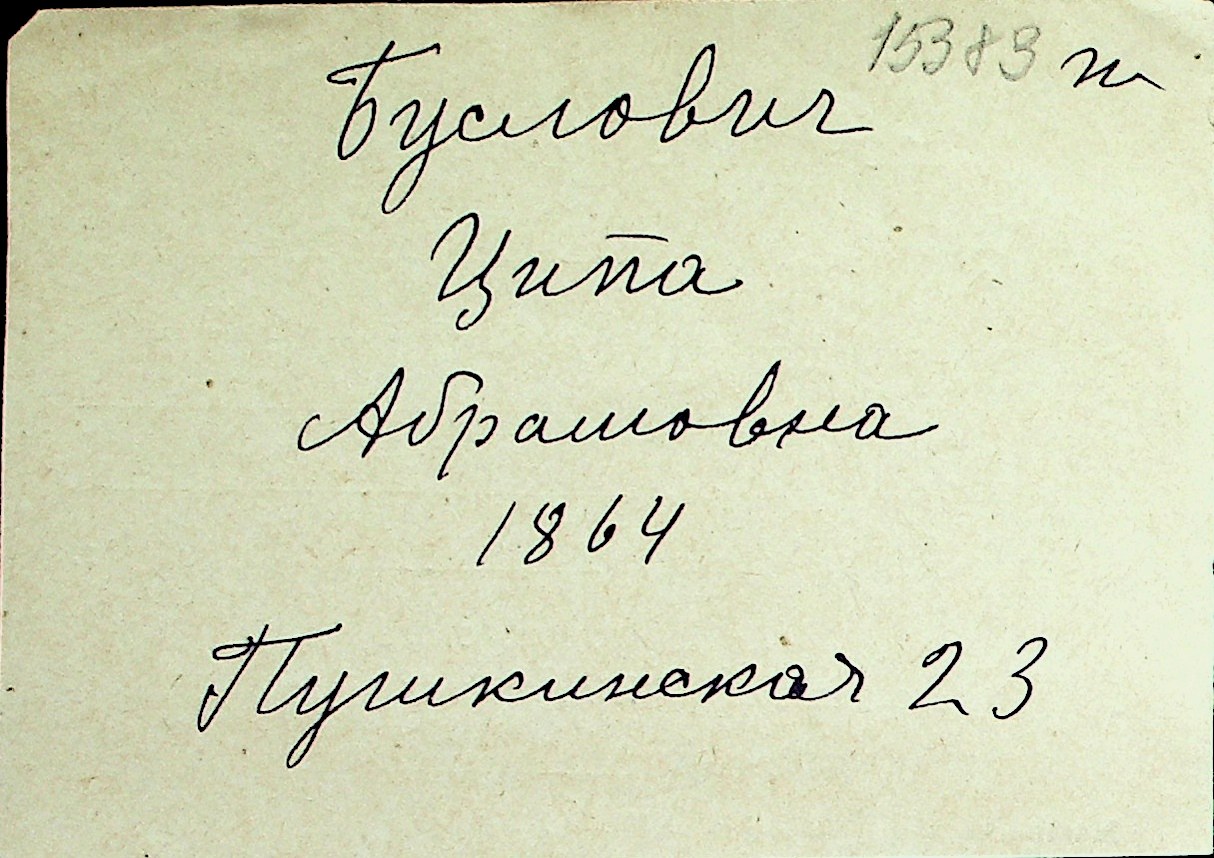 15383 п
Буслович
Ципа
Абрамовна
1864
Пушкинская 23